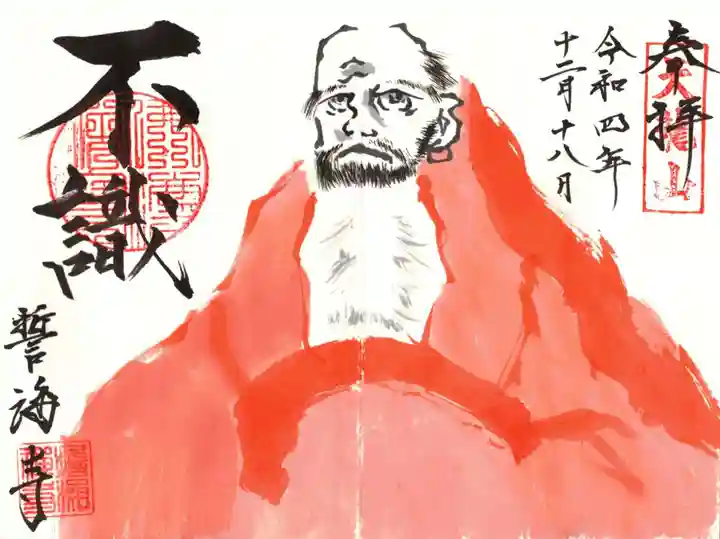 奉拝
天龍山
令和四年
十二月十八月
不識
誓海寺